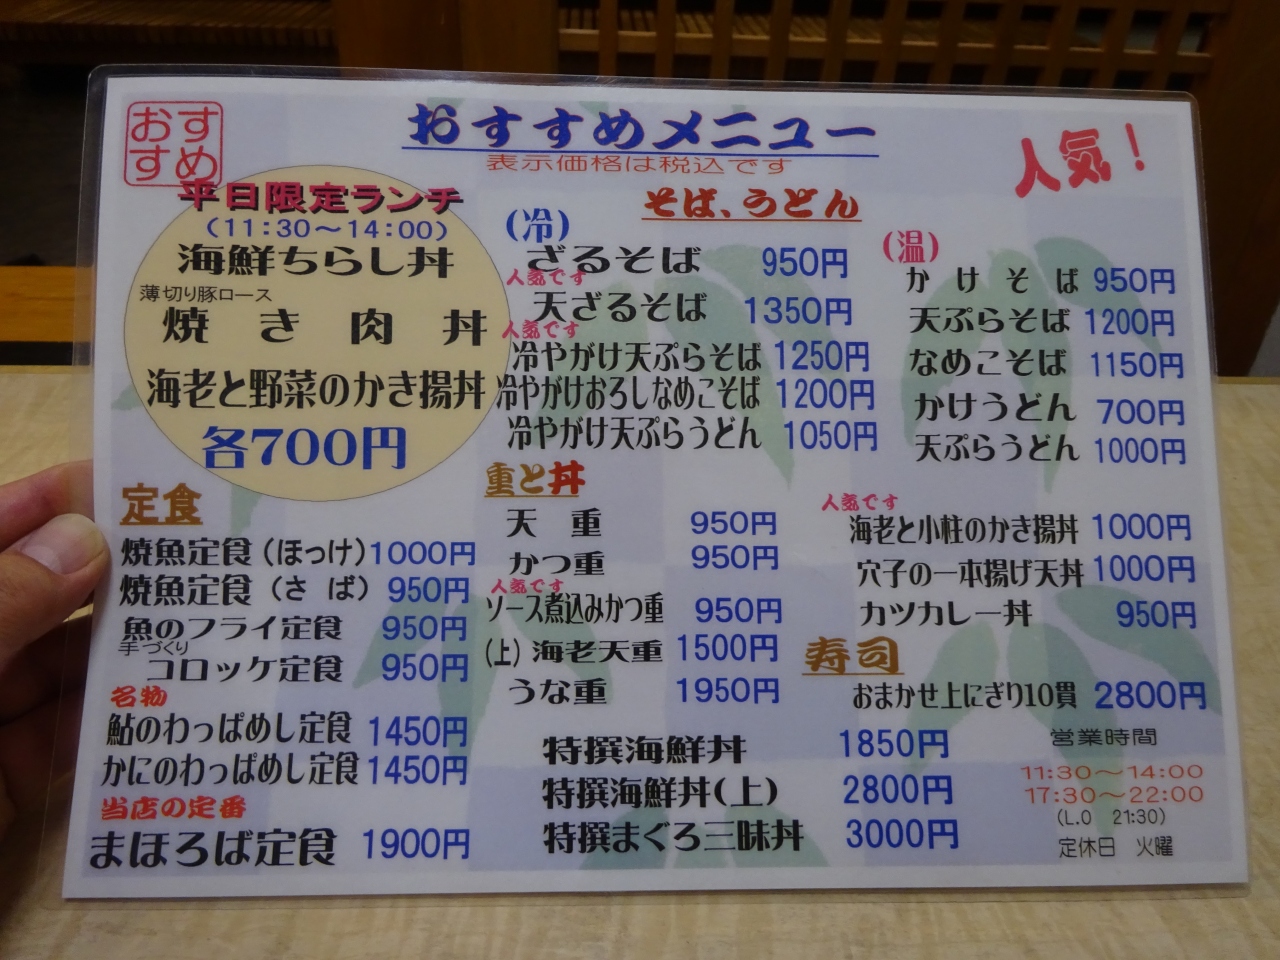 おすすめ
おすすめメニュー
表示価格は税込です
人気!
平日限定ランチ
(11:30〜14:00)
海鮮ちらし丼
薄切り豚ロース
焼き肉丼
海老と野菜のかき揚丼
各700円
そば、うどん
(冷)
ざるそば 950円
人気です
天ざるそば 1350円
人気です
冷やがけ天ぷらそば 1250円
冷やがけおろしなめこそば 1200円
冷やがけ天ぷらうどん 1050円
(温)
かけそば 950円
天ぷらそば 1200円
なめこそば 1150円
かけうどん 700円
天ぷらうどん 1000円
定食
焼魚定食(ほっけ) 1000円
焼魚定食(さば) 950円
魚のフライ定食 950円
手づくり
コロッケ定食 950円
名物
鮎のわっぱめし定食 1450円
かにのわっぱめし定食 1450円
当店の定番
まほろば定食 1900円
重と丼
天重 950円
かつ重 950円
人気です
ソース煮込みかつ重 950円
(上)海老天重 1500円
うな重 1950円
人気です
海老と小柱のかき揚丼 1000円
穴子の一本揚げ天丼 1000円
カツカレー丼 950円
寿司
おまかせ上にぎり10貫 2800円
特撰海鮮丼 1850円
特撰海鮮丼(上) 2800円
特撰まぐろ三昧丼 3000円
営業時間
11:30〜14:00
17:30〜22:00
(L.O 21:30)
定休日 火曜